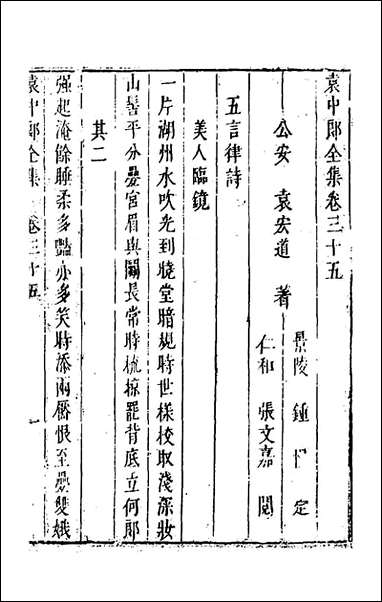 袁中郎全集卷三十五
景陵 鍾惺 定
公安 袁宏道 著
仁和 張文嘉 閱
五言律詩
美人臨鏡
一片湖州水吹光到曉堂暗窺時世樣校取淺深妝
山髻平分疊宮眉與鬭長常時梳掠罷背底立何郎
其二
強起淹餘睡柔多豔亦多笑時添兩靨恨至疊雙蛾
袁中郎全集 卷三十五 一